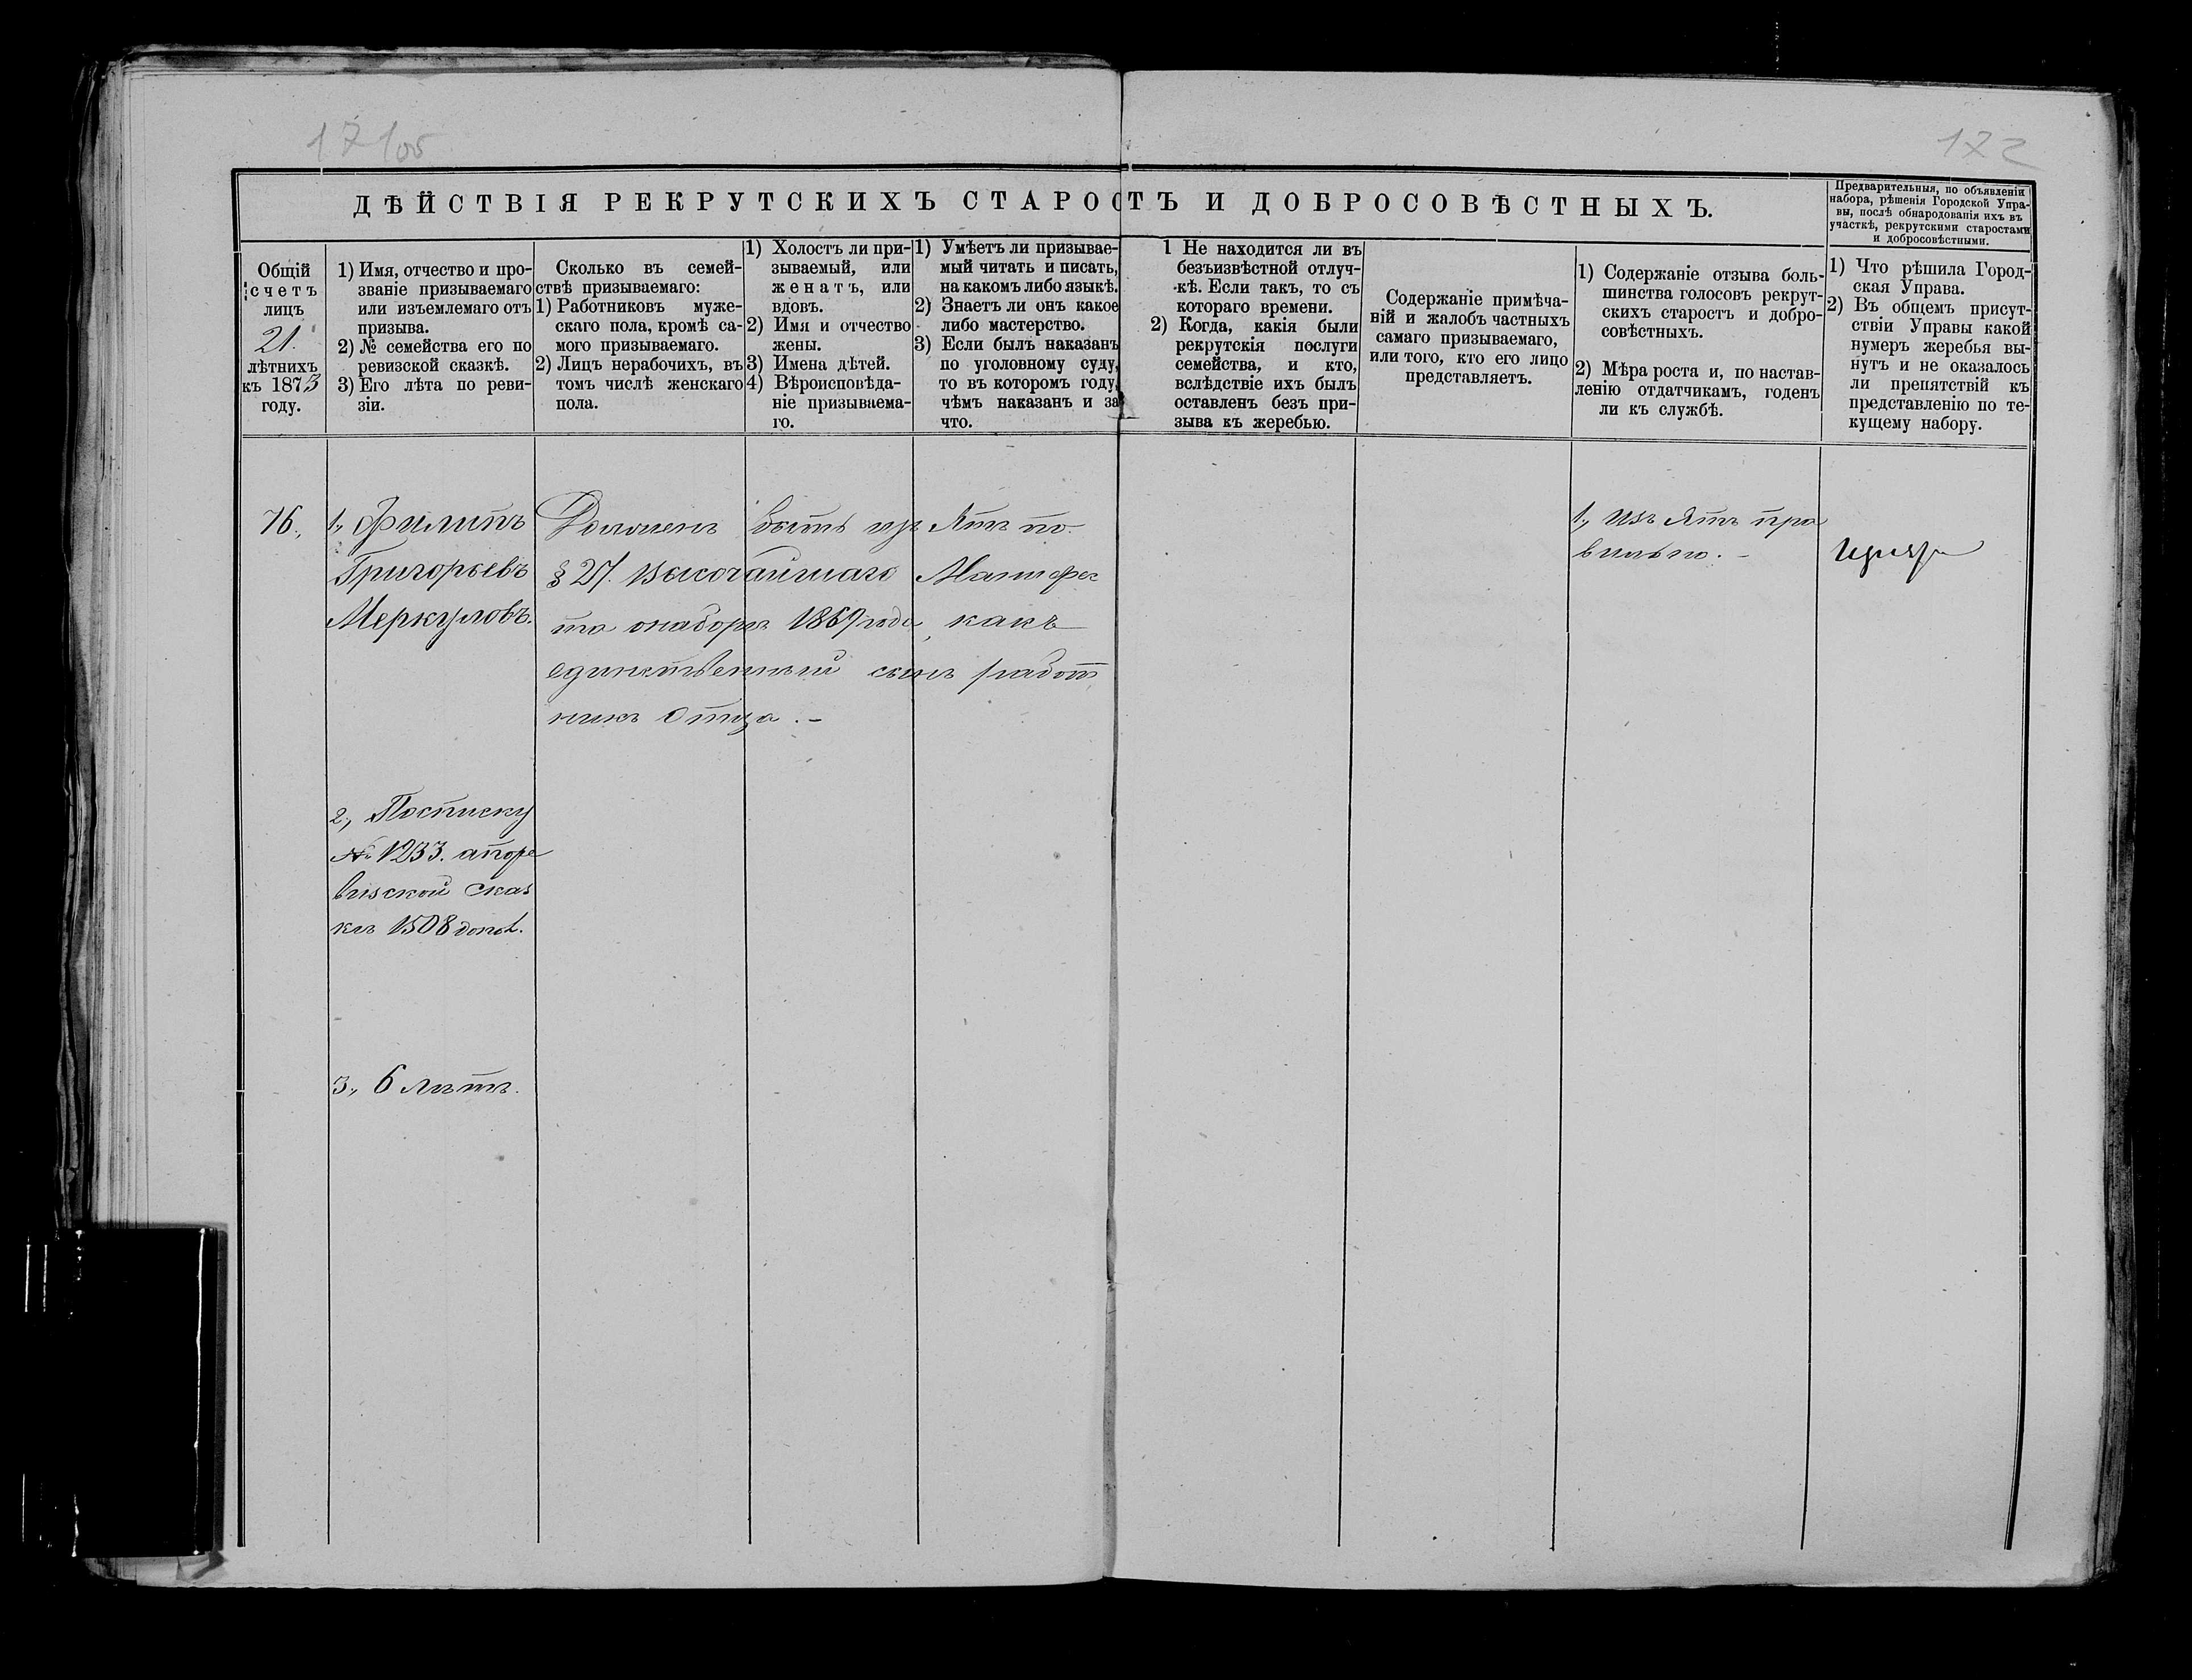 171об
172
ДѢЙСТВІЯ РЕКРУТСКИХЪ СТАРОСТЪ И ДОБРОСОВѢСТНЫХЪ.
Предварительныя, по объявленіи
набора, рѣшенія Городской Упра-
вы, послѣ обнародованія ихъ въ
участкѣ, рекрутскими старостами
и добросовѣстными.
Общій
счетъ
лицъ
21.
лѣтнихъ
къ 1873
году.
1) Имя, отчество и про-
званіе призываемаго
или изъемлемаго отъ
призыва.
2) № семейства его по
ревизской сказкѣ.
3) Его лѣта по реви-
зіи.
Сколько въ семей-
ствѣ призываемаго:
1) Работниковъ муже-
скаго пола, кромѣ са-
мого призываемаго.
2) Лицъ нерабочихъ, въ
томъ числѣ женскаго
пола.
1) Холостъ ли при-
зываемый, или
женатъ, или
вдовъ.
2) Имя и отчество
жены.
3) Имена дѣтей.
4) Вѣроисповѣда-
ніе призываема-
го.
1) Умѣетъ ли призывае-
мый читать и писать,
на какомъ либо языкѣ.
2) Знаетъ ли онъ какое
либо мастерство.
3) Если былъ наказанъ
по уголовному суду,
то въ которомъ году,
чѣмъ наказанъ и за
что.
1 Не находится ли въ
безъизвѣстной отлуч-
кѣ. Если такъ, то съ
котораго времени.
2) Когда, какія были
рекрутскія послуги
семейства, и кто,
вслѣдствіе ихъ былъ
оставленъ безъ при-
зыва къ жеребью.
Содержаніе примѣча-
ній и жалобъ частныхъ
самаго призываемаго,
или того, кто его лицо
представляетъ.
1) Содержаніе отзыва боль-
шинства голосовъ рекрут-
скихъ старостъ и добро-
совѣстныхъ.
2) Мѣра роста и, по настав-
ленію отдатчикамъ, годенъ
ли къ службѣ.
1) Что рѣшила Город-
ская Управа.
2) Въ общемъ присут-
ствіи Управы какой
нумеръ жеребья вы-
нутъ и не оказалось
ли препятствій къ
представленію по те-
кущему набору.
76.,
1., Филипъ
Григорьевъ
Меркуловъ.
Долженъ быть изъ Ятъ по
§ 27. Высочайшаго Манифес
та онаборѣ 1869 года, какъ
единственный сынъ работ
никъ Отца. –
1., Изъ Ятъ пра
вильно. –
2., Посписку
№ 1233. апоре
визской сказ
кѣ 1508 допол.
3., 6 лѣтъ.